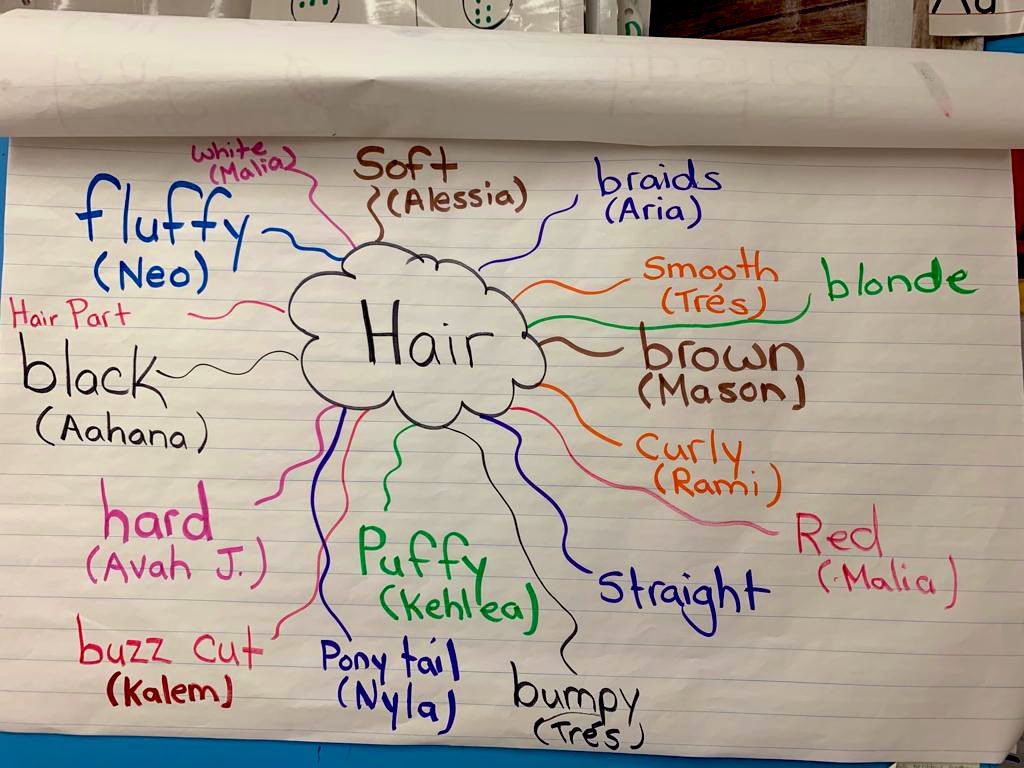 White
(Malia)
Soft
(Alessia)
braids
(Aria)
fluffy
(Neo)
Smooth
(Trés)
blonde
Hair Part
Hair
black
(Aahana)
brown
(Mason)
Curly
(Rami)
hard
(Avah J.)
Red
(Malia)
Puffy
(Kehlea)
Straight
buzz cut
(Kalem)
Pony tail
(Nyla)
bumpy
(Trés)